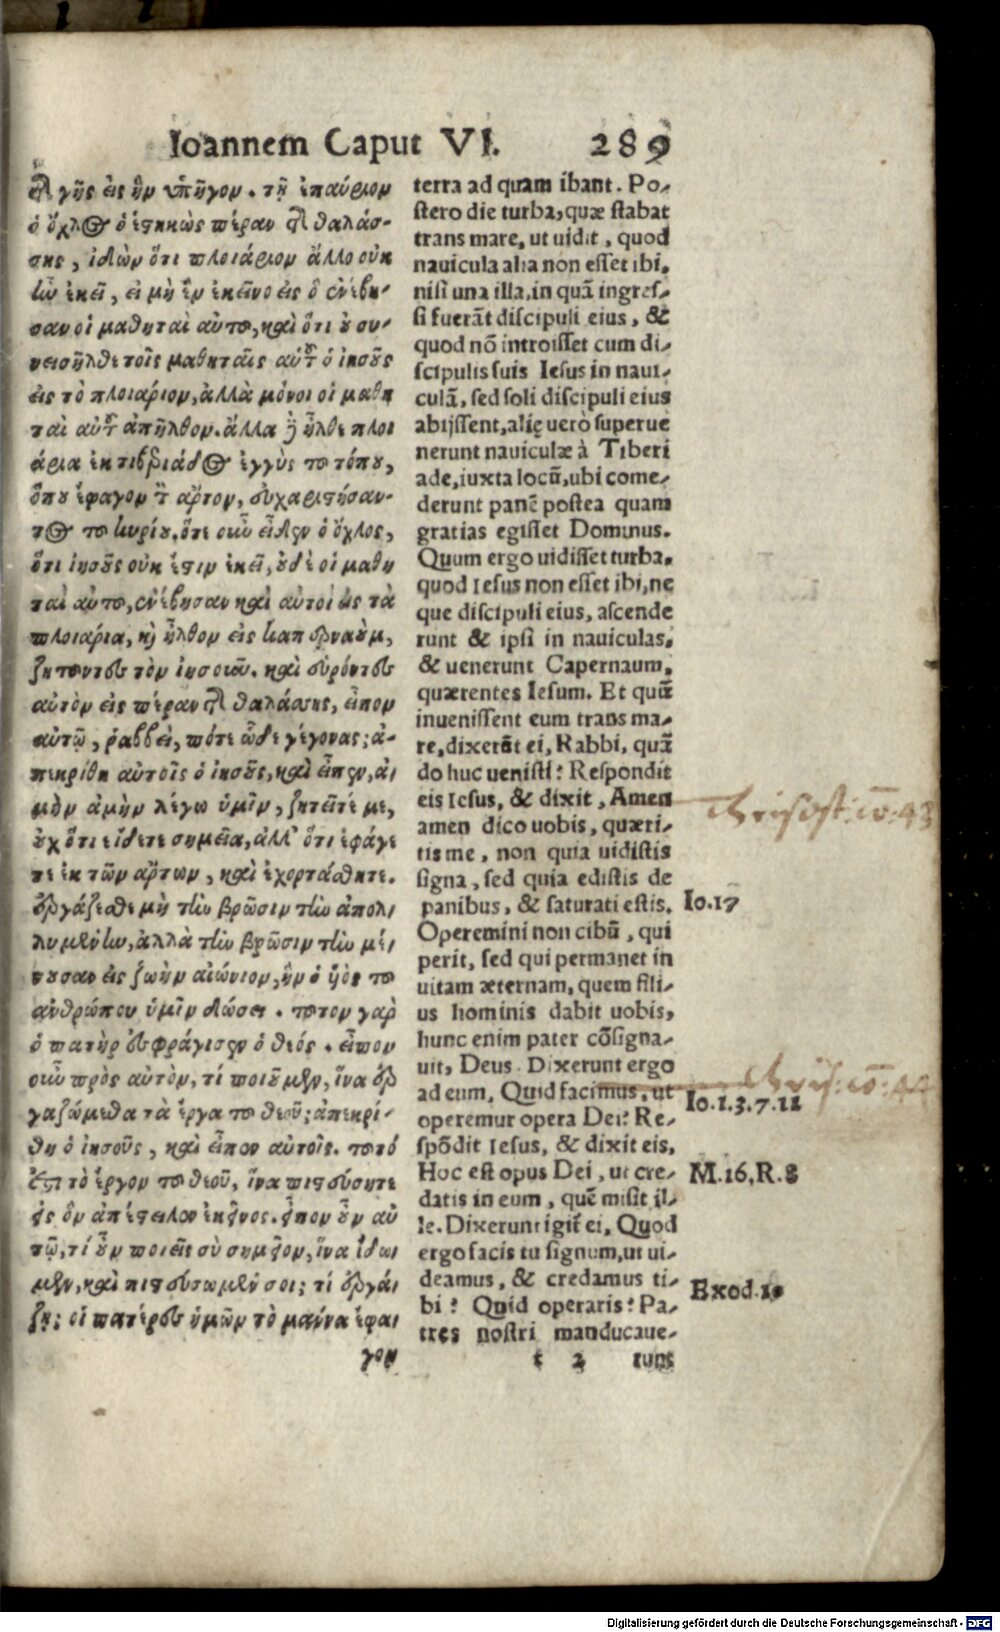 Ioannem Caput VI. 289
τ̃ γῆς εἰς ἣν ὑπῆγον. τῇ ἐπαύριον
ὁ ὄχλος ὁ ἑστηκὼς πέραν τ̃ θαλάσ-
σης, ἰδὼν ὅτι πλοιάριον ἄλλο οὐκ
ἦν ἐκεῖ, εἰ μὴ ἓν ἐκεῖνο εἰς ὃ ἐνέβη-
σαν οἱ μαθηταὶ αὐτοῦ, καὶ ὅτι οὐ συ-
νεισῆλθε τοῖς μαθηταῖς αὐτοῦ ὁ ἰησοῦς
εἰς τὸ πλοιάριον, ἀλλὰ μόνοι οἱ μαθη
ταὶ αὐτοῦ ἀπῆλθον. ἄλλα δὲ ἦλθε πλοι
άρια ἐκ τιβεριάδος ἐγγὺς τοῦ τόπου,
ὅπου ἔφαγον τὸν ἄρτον, εὐχαριστήσαν-
τος τοῦ κυρίου. ὅτε οὖν εἶδεν ὁ ὄχλος,
ὅτι ἰησοῦς οὐκ ἔστιν ἐκεῖ, οὐδὲ οἱ μαθη
ταὶ αὐτοῦ, ἐνέβησαν καὶ αὐτοὶ εἰς τὰ
πλοιάρια, καὶ ἦλθον εἰς καπερναοὺμ,
ζητοῦντες τὸν ἰησοῦν. καὶ εὑρόντες
αὐτὸν εἰς πέραν τ̃ θαλάσσης, εἶπον
αὐτῷ, ῥαββεὶ, πότε ὧδε γέγονας; ἀ-
πεκρίθη αὐτοῖς ὁ ἰησοῦς, καὶ εἶπεν, ἀ-
μὴν ἀμὴν λέγω ὑμῖν, ζητεῖτέ με,
οὐχ ὅτι εἴδετε σημεῖα, ἀλλ' ὅτι ἐφάγε
τε ἐκ τῶν ἄρτων, καὶ ἐχορτάσθητε.
ἐργάζεσθε μὴ τὴν βρῶσιν τὴν ἀπολ-
λυμένην, ἀλλὰ τὴν βρῶσιν τὴν μέ-
νουσαν εἰς ζωὴν αἰώνιον, ἣν ὁ ὑὸς τοῦ
ἀνθρώπου ὑμῖν δώσει. τοῦτον γὰρ
ὁ πατὴρ ἐσφράγισεν ὁ θεός. εἶπον
οὖν πρὸς αὐτὸν, τί ποιοῦμεν, ἵνα ἐρ
γαζώμεθα τὰ ἔργα τοῦ θεοῦ; ἀπεκρί-
θη ὁ ἰησοῦς, καὶ εἶπεν αὐτοῖς. τοῦτό
ἐστι τὸ ἔργον τοῦ θεοῦ, ἵνα πιστεύσητε
εἰς ὃν ἀπέστειλεν ἐκεῖνος. εἶπον οὖν αὐ
τῷ, τί οὖν ποιεῖς σὺ σημεῖον, ἵνα ἴδω-
μεν, καὶ πιστεύσωμέν σοι; τί ἐργά-
ζῃ; οἱ πατέρες ἡμῶν τὸ μάννα ἔφα-
γον
terra ad quam ibant. Po-
stero die turba, quæ stabat
trans mare, ut uidit, quod
nauicula alia non esset ibi,
nisi una illa, in quā ingres-
si fuerāt discipuli eius, &
quod nō introisset cum di-
scipulis suis Iesus in naui-
culā, sed soli discipuli eius
abijssent, alię uerò superue
nerunt nauiculæ à Tiberi
ade, iuxta locū, ubi come-
derunt panē postea quam
gratias egisset Dominus.
Quum ergo uidisset turba,
quod Iesus non esset ibi, ne
que discipuli eius, ascende
runt & ipsi in nauiculas,
& uenerunt Capernaum,
quærentes Iesum. Et quū
inuenissent eum trans ma-
re, dixerāt ei, Rabbi, quā
do huc uenisti? Respondit
eis Iesus, & dixit, Amen
amen dico uobis, quæri-
tis me, non quia uidistis
signa, sed quia edistis de
panibus, & saturati estis.
Operemini non cibū, qui
perit, sed qui permanet in
uitam æternam, quem fili-
us hominis dabit uobis,
hunc enim pater cōsigna-
uit, Deus. Dixerunt ergo
ad eum, Quid facimus, ut
operemur opera Dei? Re-
spōdit Iesus, & dixit eis,
Hoc est opus Dei, ut cre-
datis in eum, quē misit il-
le. Dixerunt igit̃ ei, Quod
ergo facis tu signum, ut ui-
deamus, & credamus ti-
bi? Quid operaris? Pa-
tres nostri manducaue-
t 2 runt
Chrisost: co: 43
Io.17
Chris: co: 44
Io.1.3.7.11
M.16,R.8
Exod.16
Digitalisierung gefördert durch die Deutsche Forschungsgemeinschaft - DFG